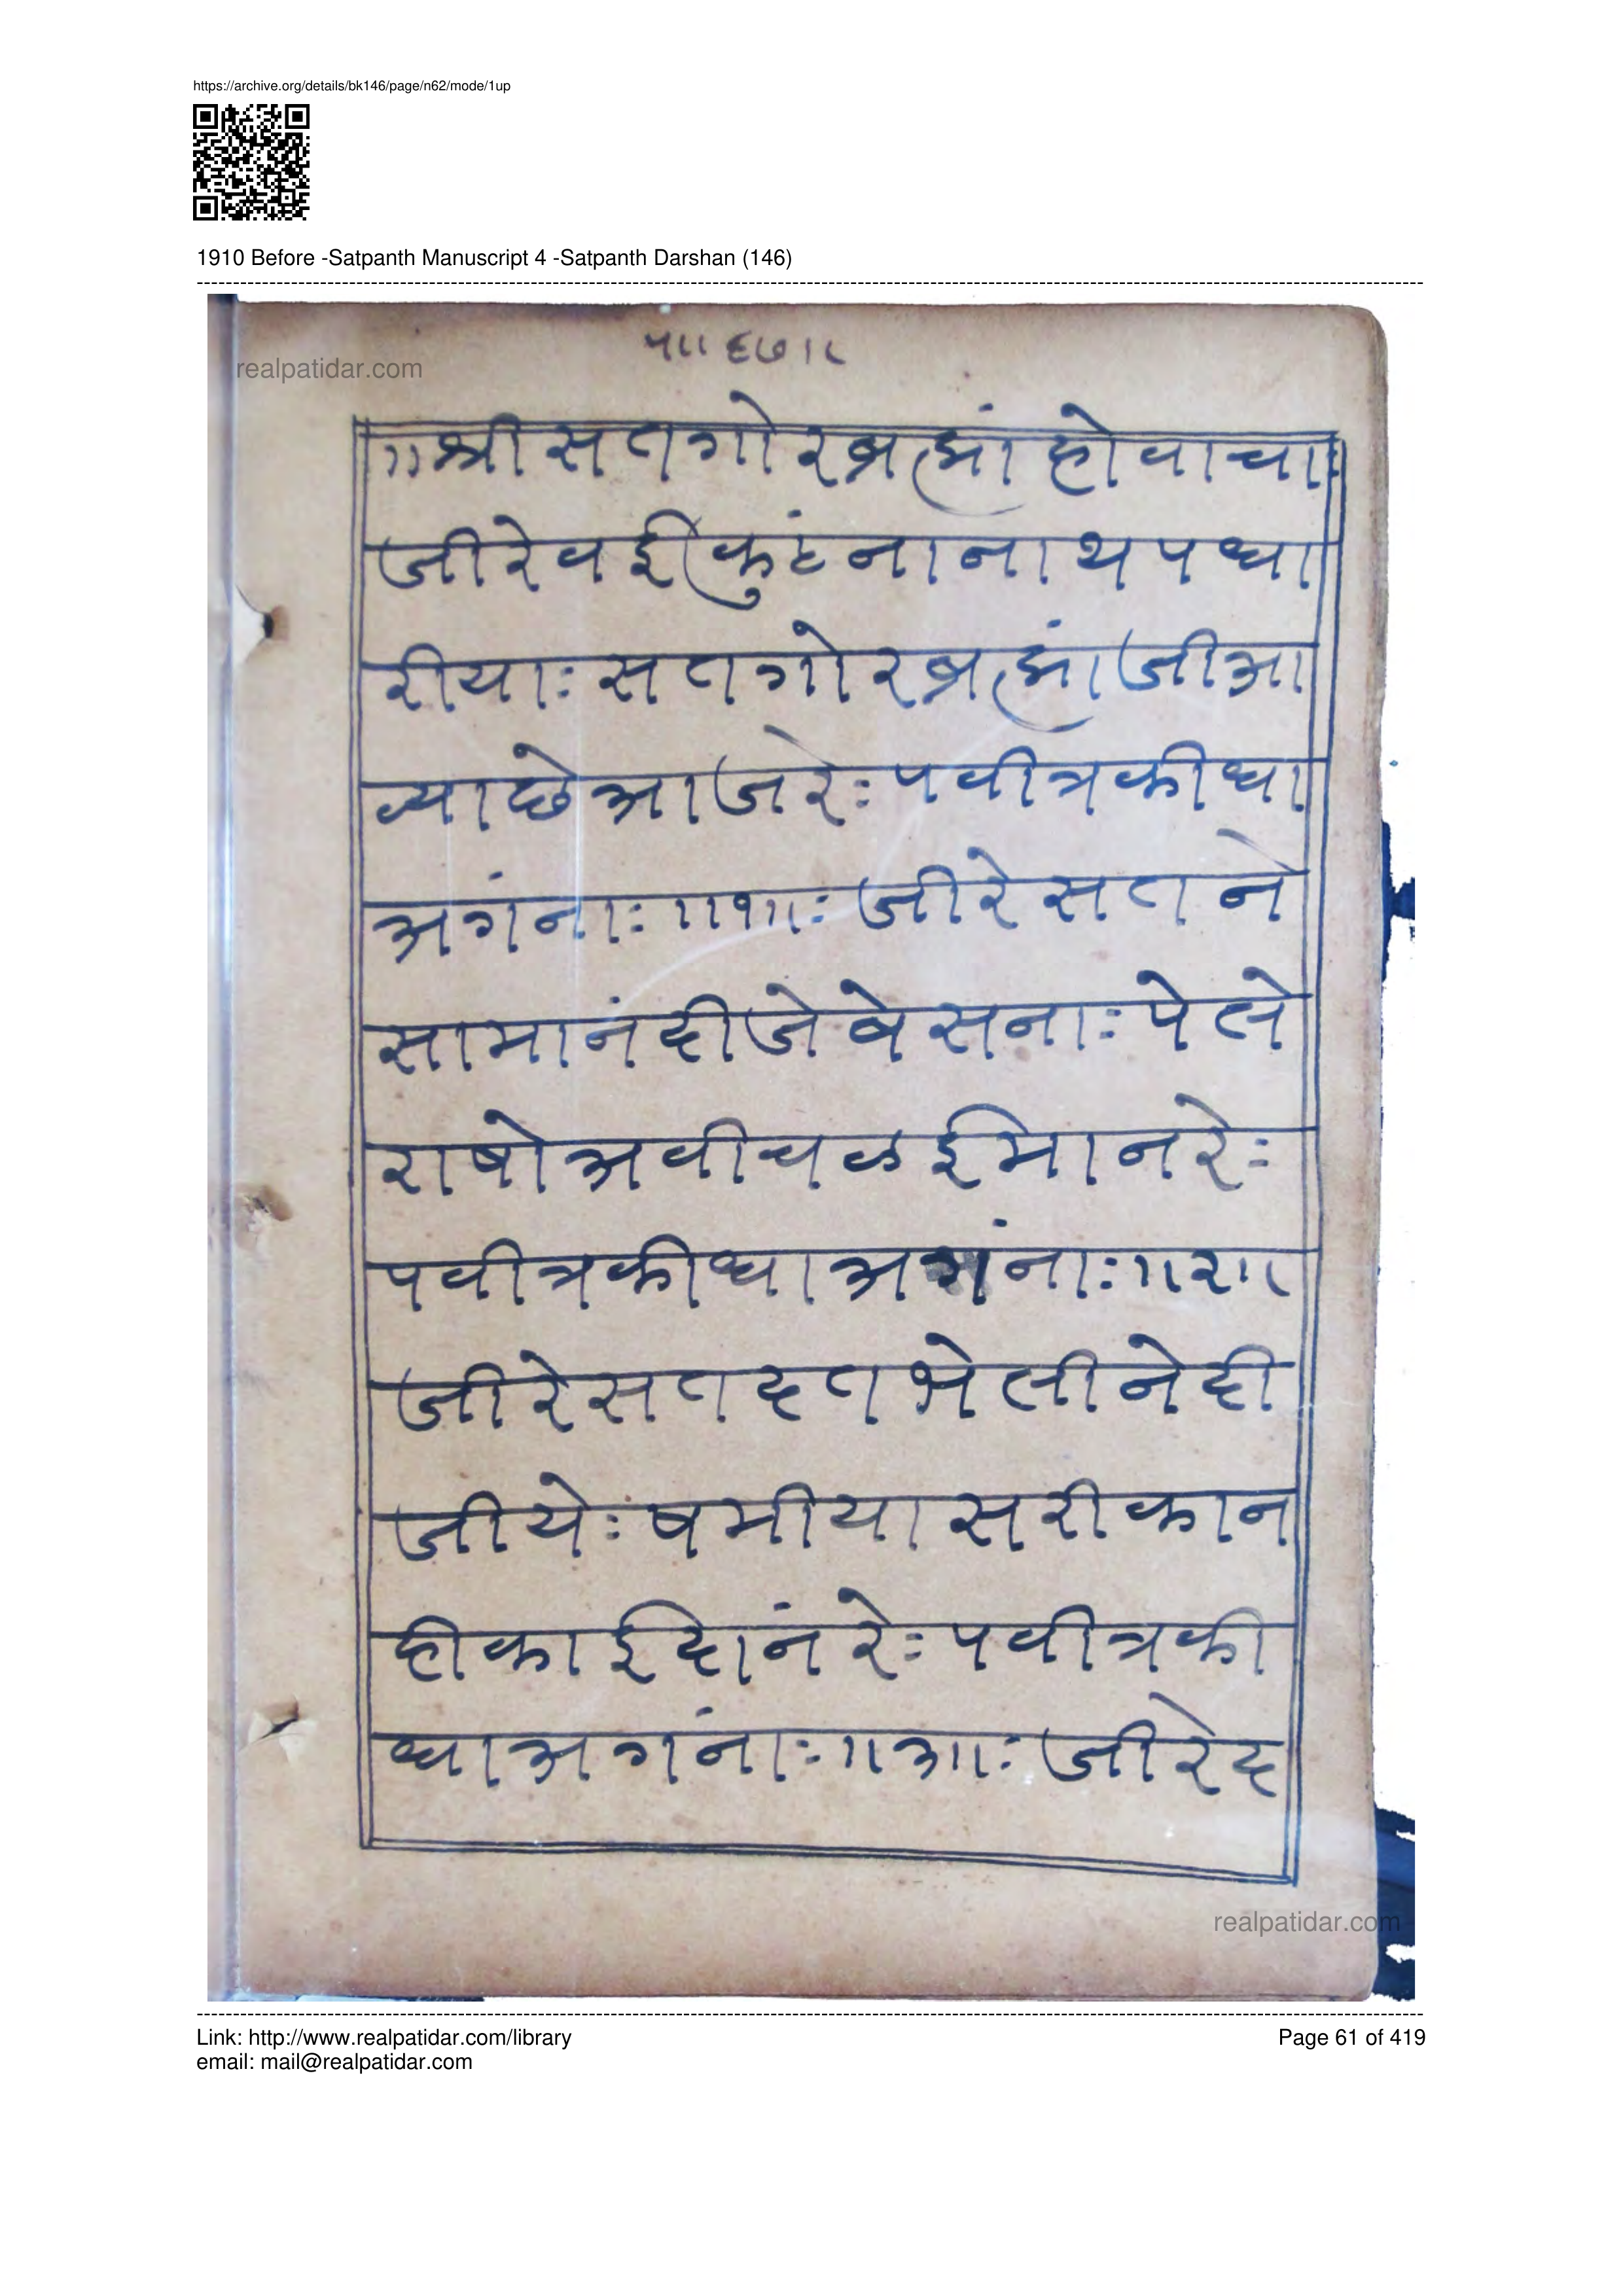 https://archive.org/details/bk146/page/n62/mode/1up
1910 Before -Satpanth Manuscript 4 -Satpanth Darshan (146)
realpatidar.com
५॥ ६७॥
॥श्री सतगोर ब्रह्मां होवाचा
जीरे वईकुंठ नानाथ पधा
रीयाः सतगोर ब्रह्मांजी आ
व्या छे आजरेः पवीत्र कीधा
अगंनाः ॥१॥ः जीरे सतने
सामानं दीजे बेसनाः पेले
राषो अवीचळ ईमानरेः
पवीत्र कीधा अगंनाः ॥२॥
जीरे सत दत भेली ने दी
जीयेः षमीया सरीका न
ही काई दानं रेः पवीत्र की
धा अगंनाः ॥३॥ः जीरे द
realpatidar.com
Link: http://www.realpatidar.com/library
Page 61 of 419
email: mail@realpatidar.com